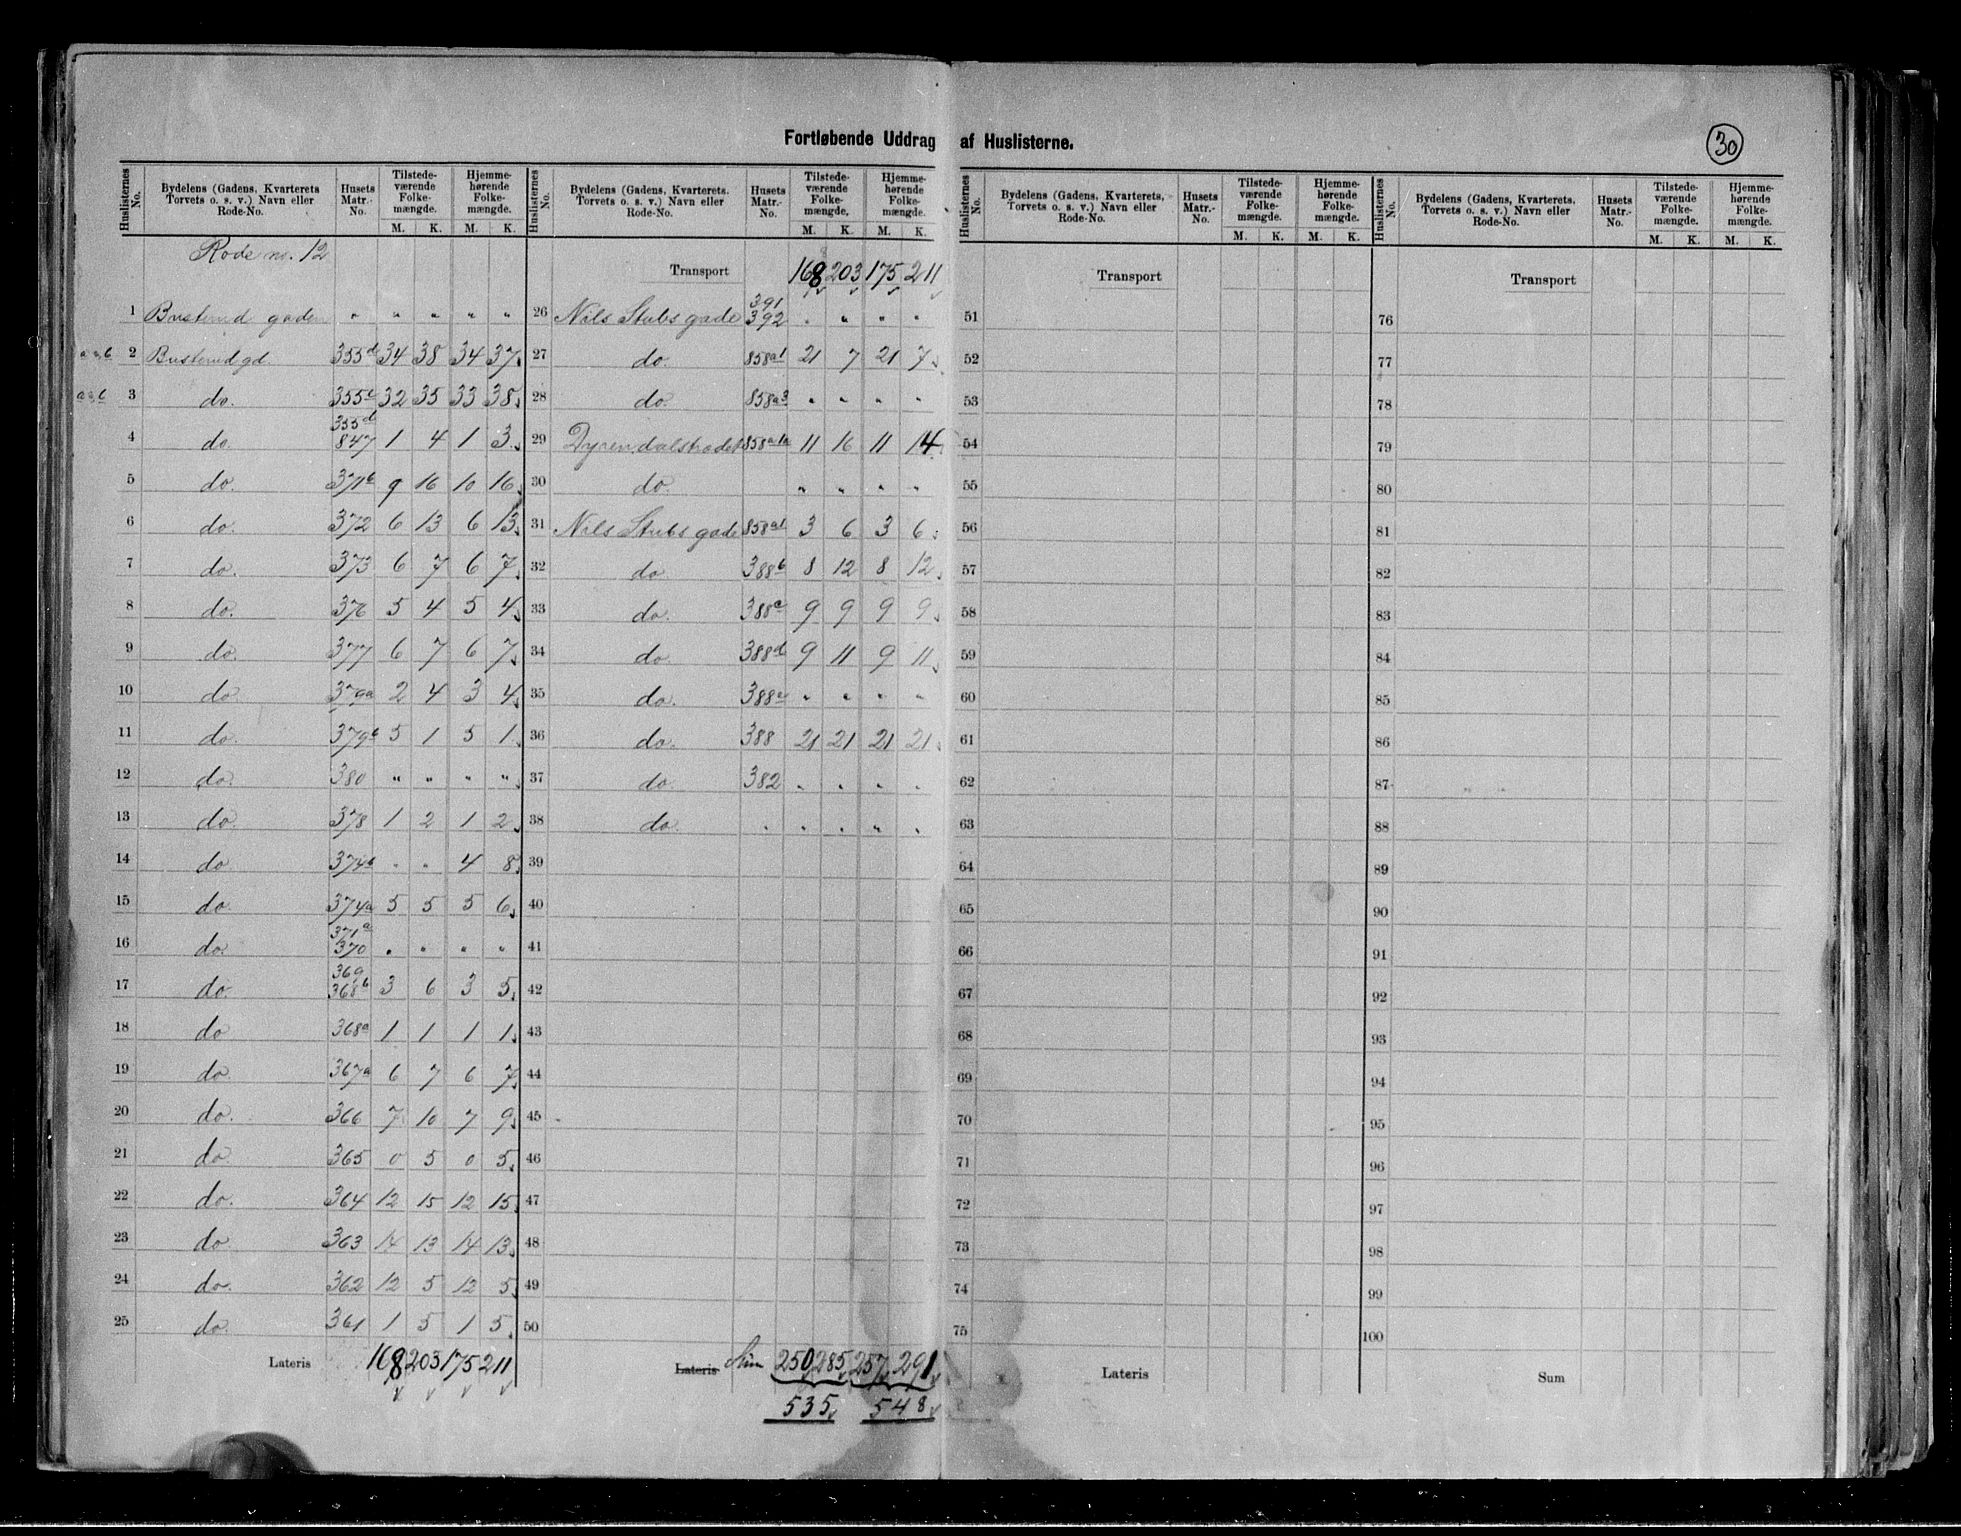 Fortløbende Uddrag af Huslisterne.
30
Huslisternes No. | Bydelens (Gadens, Kvarterets Torvets o. s. v.) Navn eller Rode-No. | Husets Matr.-No. | Tilstedeværende Folkemængde. M. K. | Hjemmehørende Folkemængde. M. K.
Rode no. 12
1 Busterud gaden " " " " "
2 Busterudgd. 355d 34 38 34 37
3 do. 355c 32 35 33 38
4 do 355d 847 1 4 1 3
5 do. 371b 9 16 10 16
6 do. 372 6 13 6 13
7 do. 373 6 7 6 7
8 do. 376 5 4 5 4
9 do. 377 6 7 6 7
10 do. 379a 2 4 3 4
11 do. 379b 5 1 5 1
12 do. 380 " " " "
13 do. 378 1 2 1 2
14 do 374b " " 4 8
15 do. 374a 5 5 5 6
16 do. 371a 370 " " " "
17 do. 369 368b 3 6 3 5
18 do 368a 1 1 1 1
19 do. 367a 6 7 6 7
20 do. 366 7 10 7 9
21 do. 365 0 5 0 5
22 do. 364 12 15 12 15
23 do. 363 14 13 14 13
24 do. 362 12 5 12 5
25 do. 361 1 5 1 5
Lateris 168 203 175 211
Huslisternes No. | Bydelens (Gadens, Kvarterets. Torvets o. s. v.) Navn eller Rode-No. | Husets Matr.-No. | Tilstedeværende Folkemængde. M. K. | Hjemmehørende Folkemængde. M. K.
Transport 168 203 175 211
26 Nils Stubs gade 391 392 " " " "
27 do. 858a1 21 7 21 7
28 do. 858a3 " " " "
29 Dyrendalstrædet 858a1a 11 16 11 14
30 do. " " " "
31 Nils Stubs gade 858a1 3 6 3 6
32 do 388b 8 12 8 12
33 do. 388c 9 9 9 9
34 do. 388d 9 11 9 11
35 do. 388a " " " "
36 do. 388 21 21 21 21
37 do. 382 " " " "
38 do. " " " " "
39
40
41
42
43
44
45
46
47
48
49
50
Lateris Sum 250 285 257 291
535 548
Huslisternes No. | Bydelens (Gadens, Kvarterets, Torvets o. s. v.) Navn eller Rode-No. | Husets Matr.-No. | Tilstedeværende Folkemængde. M. K. | Hjemmehørende Folkemængde. M. K.
Transport
51
52
53
54
55
56
57
58
59
60
61
62
63
64
65
66
67
68
69
70
71
72
73
74
75
Lateris
Huslisternes No. | Bydelens (Gadens, Kvarterets, Torvets o. s. v.) Navn eller Rode-No. | Husets Matr.-No. | Tilstedeværende Folkemængde. M. K. | Hjemmehørende Folkemængde. M. K.
Transport
76
77
78
79
80
81
82
83
84
85
86
87
88
89
90
91
92
93
94
95
96
97
98
99
100
Sum